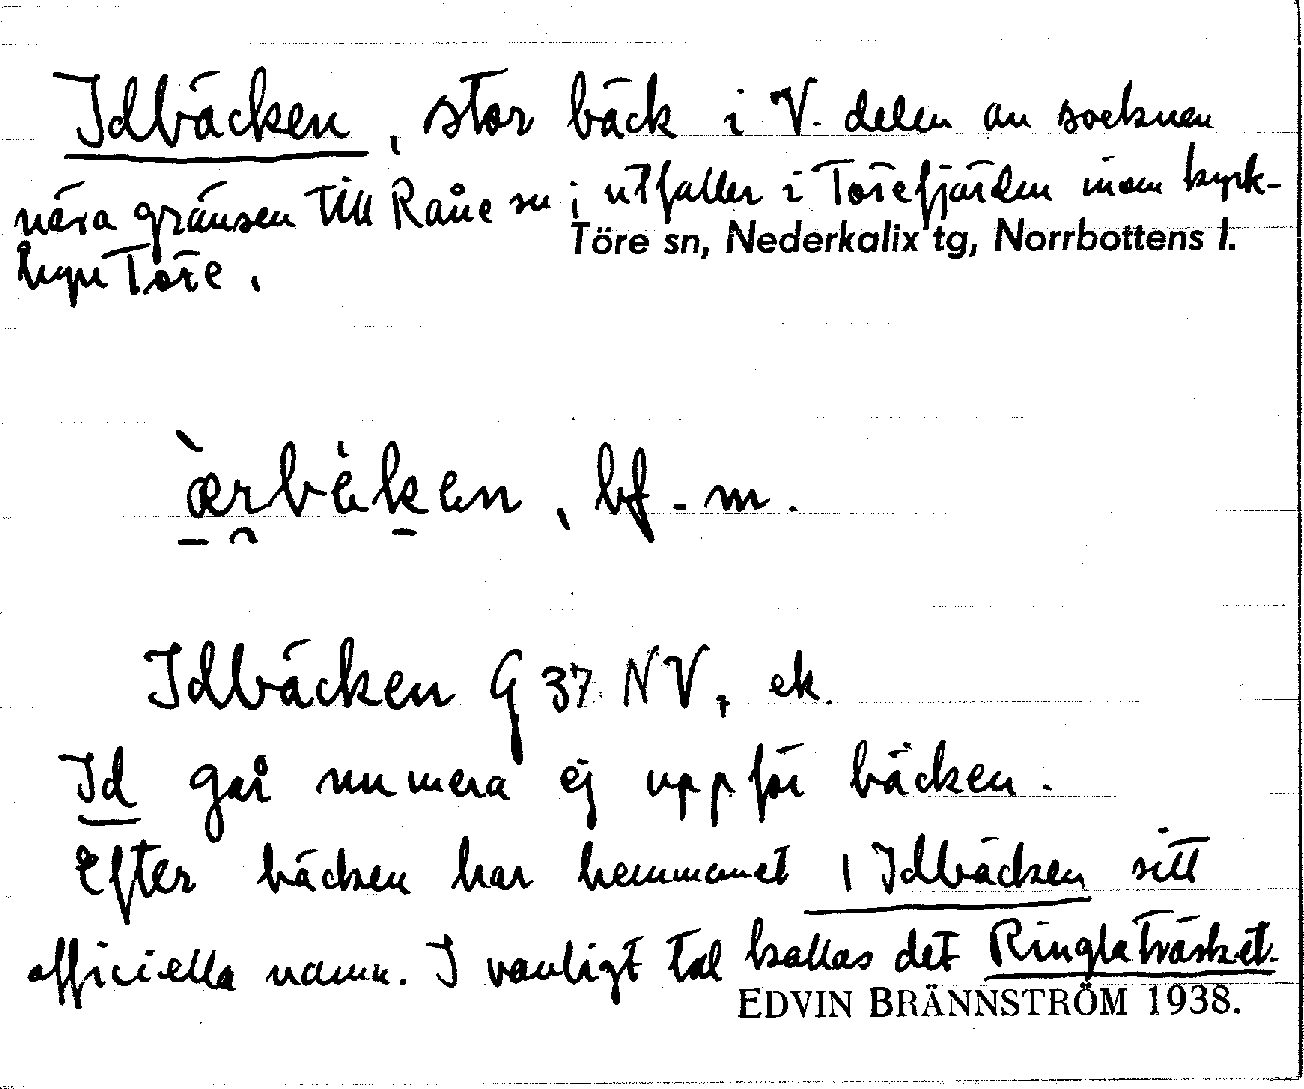 Idbäcken, stor bäck i V. delen av socknen
nära gränsen till Råne sn; utfaller i Törefjärden inom kyrk-
Töre sn, Nederkalix tg, Norrbottens l.
byn Töre.
æ̀rbèken, bf. m.
Idbäcken G 37 NV, ek.
Id går numera ej uppför bäcken.
Efter bäcken har hemmanet 1 Idbäcken sitt
officiella namn. I vanligt tal kallas det Ringlaträsket.
EDVIN BRÄNNSTRÖM 1938.